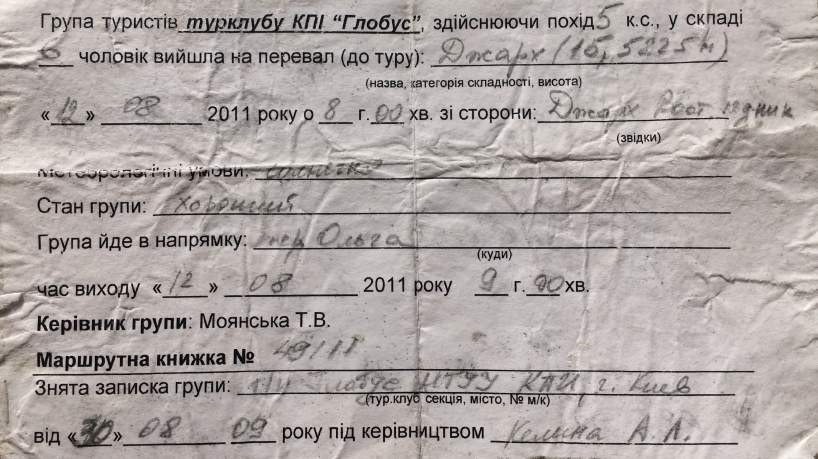 Група туристів турклубу КПІ "Глобус", здійснюючи похід 5 к.с., у складі
6 чоловік вийшла на перевал (до туру): Джарх (1б, 5225м)
(назва, категорія складності, висота)
«12» 08 2011 року о 8 г. 00 хв. зі сторони: Джарх Вост. ледник
(звідки)
Метеорологічні умови:
Стан групи: Хороший
Група йде в напрямку: пер Ольга
(куди)
час виходу «12» 08 2011 року 9 г. 00 хв.
Керівник групи: Моянська Т.В.
Маршрутна книжка № 49/11
Знята записка групи: т/к Глобус НТУУ КПИ, г. Киев
(тур.клуб секція, місто, № м/к)
від «30» 08 09 року під керівництвом А. Л.